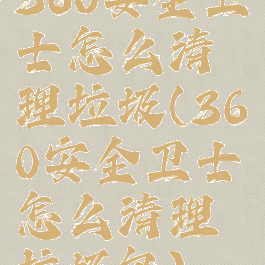 360安全卫
士怎么清
理垃圾(36
0安全卫士
怎么清理
垃圾包)